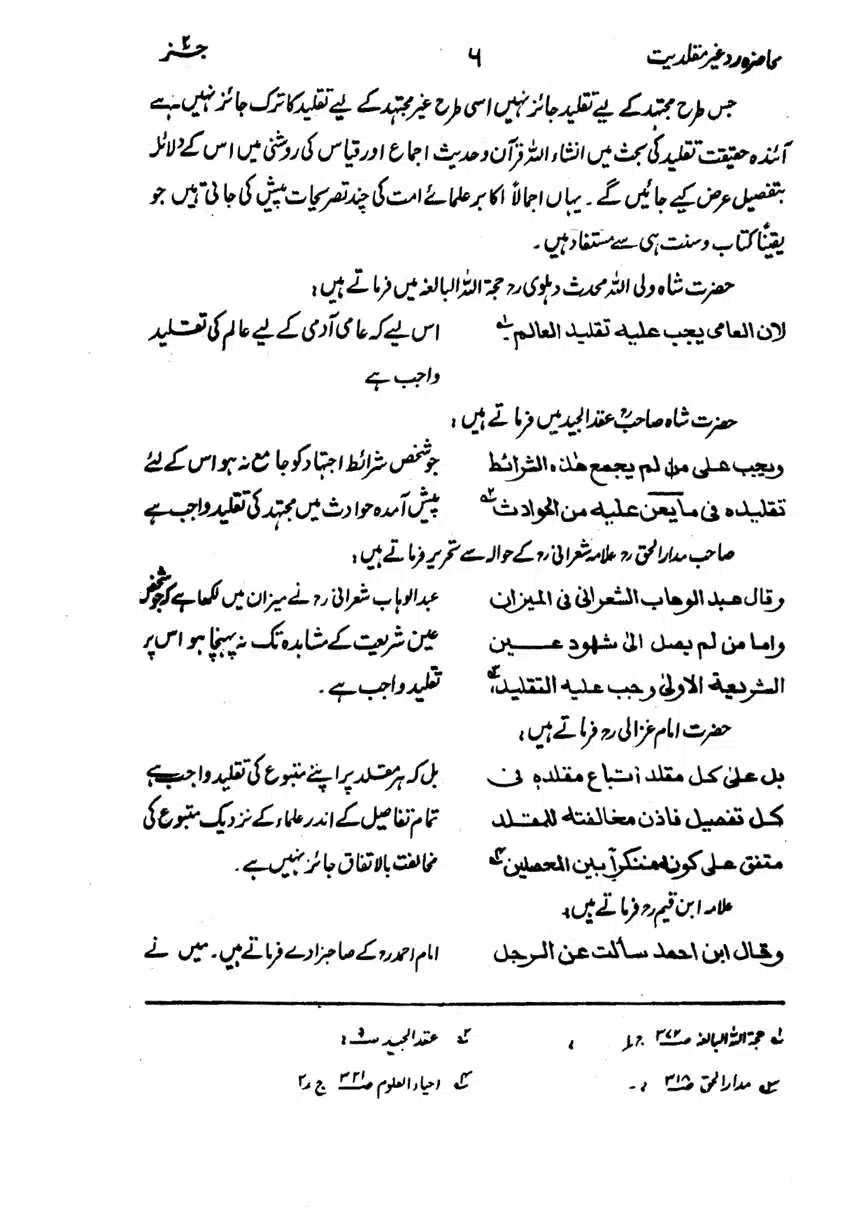 محاضرہ رد غیر مقلدیت ۶ جز ۲
جس طرح مجتہد کے لیے تقلید جائز نہیں اسی طرح غیر مجتہد کے لیے تقلید کا ترک جائز نہیں ہے
آئندہ حقیقت تقلید کی بحث میں انشاء اللہ قرآن وحدیث اجماع اور قیاس کی روشنی میں اس کے دلائل
بتفصیل عرض کیے جائیں گے۔ یہاں اجمالاً اکابر علمائے امت کی چند تصریحات پیش کی جاتی ہیں جو
یقیناً کتاب و سنت ہی سے مستفاد ہیں۔
حضرت شاہ ولی اللہ محدث دہلوی رح حجۃ اللہ البالغہ میں فرماتے ہیں:
لان العامی یجب علیہ تقلید العالم۔ ۱ اس لیے کہ عامی آدمی کے لیے عالم کی تقلید
واجب ہے
حضرت شاہ صاحبؒ عقد الجید میں فرماتے ہیں:
ویجب علی من لم یجمع ھٰذہ الشرائط جو شخص شرائط اجتہاد کو جامع نہ ہو اس کے لئے
تقلیدہ فی ما یعن علیہ من الحوادث ۲ پیش آمدہ حوادث میں مجتہد کی تقلید واجب ہے
صاحب مدار الحق رح علامہ شعرانی رح کے حوالہ سے تحریر فرماتے ہیں:
وقال عبد الوھاب الشعرانی فی المیزان عبد الوہاب شعرانی رح نے میزان میں لکھا ہے کہ جو شخص
واما من لم یصل الیٰ شھود عین عین شریعت کے مشاہدہ تک نہ پہنچا ہو اس پر
الشریعۃ الاولیٰ وجب علیہ التقلید، ۳ تقلید واجب ہے۔
حضرت امام غزالی رح فرماتے ہیں:
بل علیٰ کل مقلد اتباع مقلدہ فی بل کہ ہر مقلد پر اپنے متبوع کی تقلید واجب ہے
کل تفصیل فاذن مخالفتہ للمقلد تمام تفاصیل کے اندر علماء کے نزدیک متبوع کی
متفق علی کونہ منکراً بین المحصلین ۴ مخالفت بالاتفاق جائز نہیں ہے۔
علامہ ابن قیم رح فرماتے ہیں:
وقال ابن احمد سألت عن الرجل امام احمد رح کے صاحبزادے فرماتے ہیں۔ میں نے
۱ حجۃ اللہ البالغہ ص ۳۷۲ ج ۱، ۲ عقد الجید ص ۹:
۳ مدار الحق ص ۳۱۸، ۔ ۴ احیاء العلوم ص ۳۲۱ ج ۲